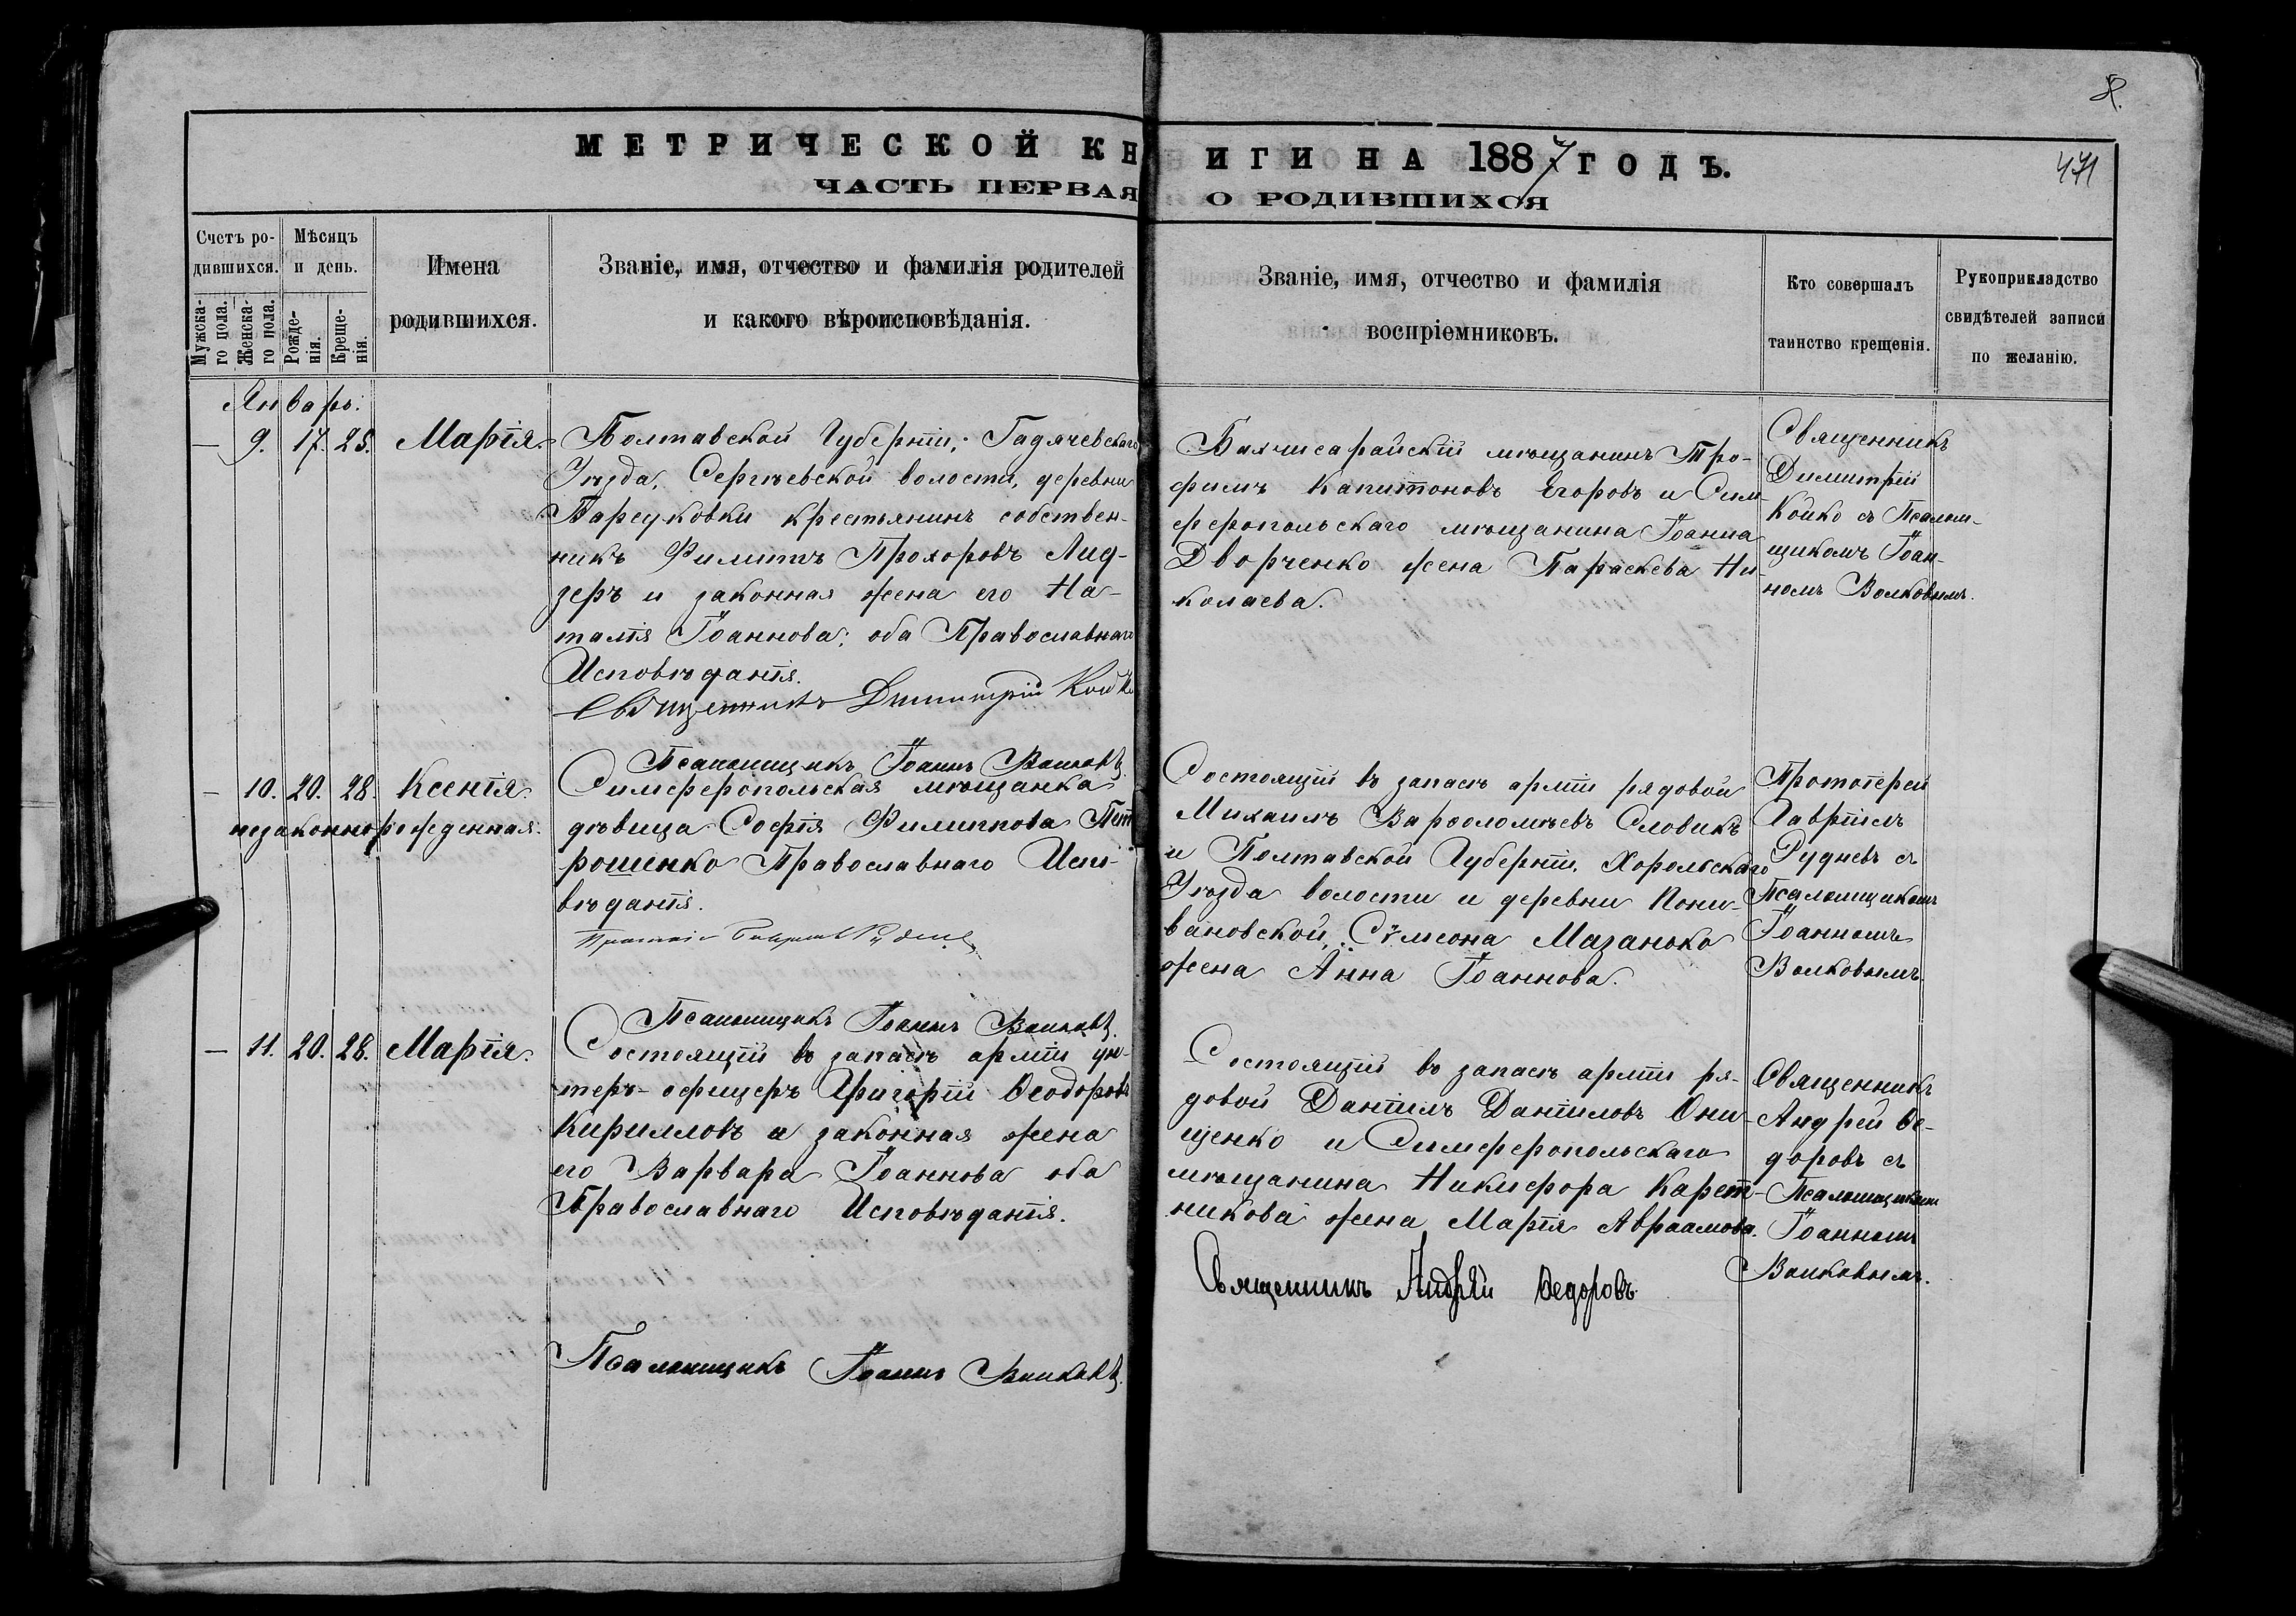 8.
МЕТРИЧЕСКОЙ КНИГИ НА 1887 ГОДЪ.
471
ЧАСТЬ ПЕРВАЯ О РОДИВШИХСЯ
Счетъ ро-
дившихся.
Мужска-
го пола.
Женска-
го пола.
Мѣсяцъ
и день.
Рожде-
нія.
Креще-
нія.
Имена
родившихся.
Званіе, имя, отчество и фамилія родителей
и какого вѣроисповѣданія.
Званіе, имя, отчество и фамилія
воспріемниковъ.
Кто совершалъ
таинство крещенія.
Рукоприкладство
свидѣтелей записи
по желанію.
Январь.
— 9. 17. 25. Марія.
Полтавской Губерніи; Гадячевскаго
Уѣзда, Сергѣевской волости, деревни
крестьянинъ собствен-
никъ Филиппъ Прохоровъ Лид-
зеръ и законная жена его На-
талія Іоаннова; оба Православнаго
Исповѣданія.
Священникъ Димитрій Койко
Псаломщикъ Іоаннъ Волковъ.
Бахчисарайскій мѣщанинъ Тро-
фимъ Капитоновъ Егоровъ и Сим-
феропольскаго мѣщанина Іоанна
Дворченко жена Параскева Ни-
колаева.
Священникъ
Димитрій
Койко съ Псалом-
щикомъ Іоан-
номъ Волковымъ.
— 10. 20. 28. Ксенія.
незаконнорожденная.
Симферопольская мѣщанка
дѣвица Софія Филиппова Пет
рошенко Православнаго Испо-
вѣданія.
Псаломщикъ Іоаннъ Волковъ.
Состоящій въ запасѣ арміи рядовой
Михаилъ Варѳоломѣевъ Словикъ
и Полтавской Губерніи, Хорольскаго
Уѣзда волости и деревни Кони-
вановской, Сѵмеона Мазанько
жена Анна Іоаннова.
Протоіерей
Гавріилъ
Рудневъ съ
Псаломщикомъ
Іоанномъ
Волковымъ.
— 11. 20. 28. Марія.
Состоящій въ запасѣ арміи ун-
теръ-офицеръ Григорій Ѳеодоровъ
Кирилловъ и законная жена
его Варвара Іоаннова оба
Православнаго Исповѣданія.
Псаломщикъ Іоаннъ Волковъ.
Состоящій въ запасѣ арміи ря-
довой Даніилъ Даніиловъ Они-
щенко и Симферопольскаго
мѣщанина Никифора Карет-
никова жена Марія Авраамова.
Священникъ Андрей Ѳедоровъ.
Священникъ
Андрей Ѳе-
доровъ съ
Псаломщикомъ
Іоанномъ
Волковымъ.